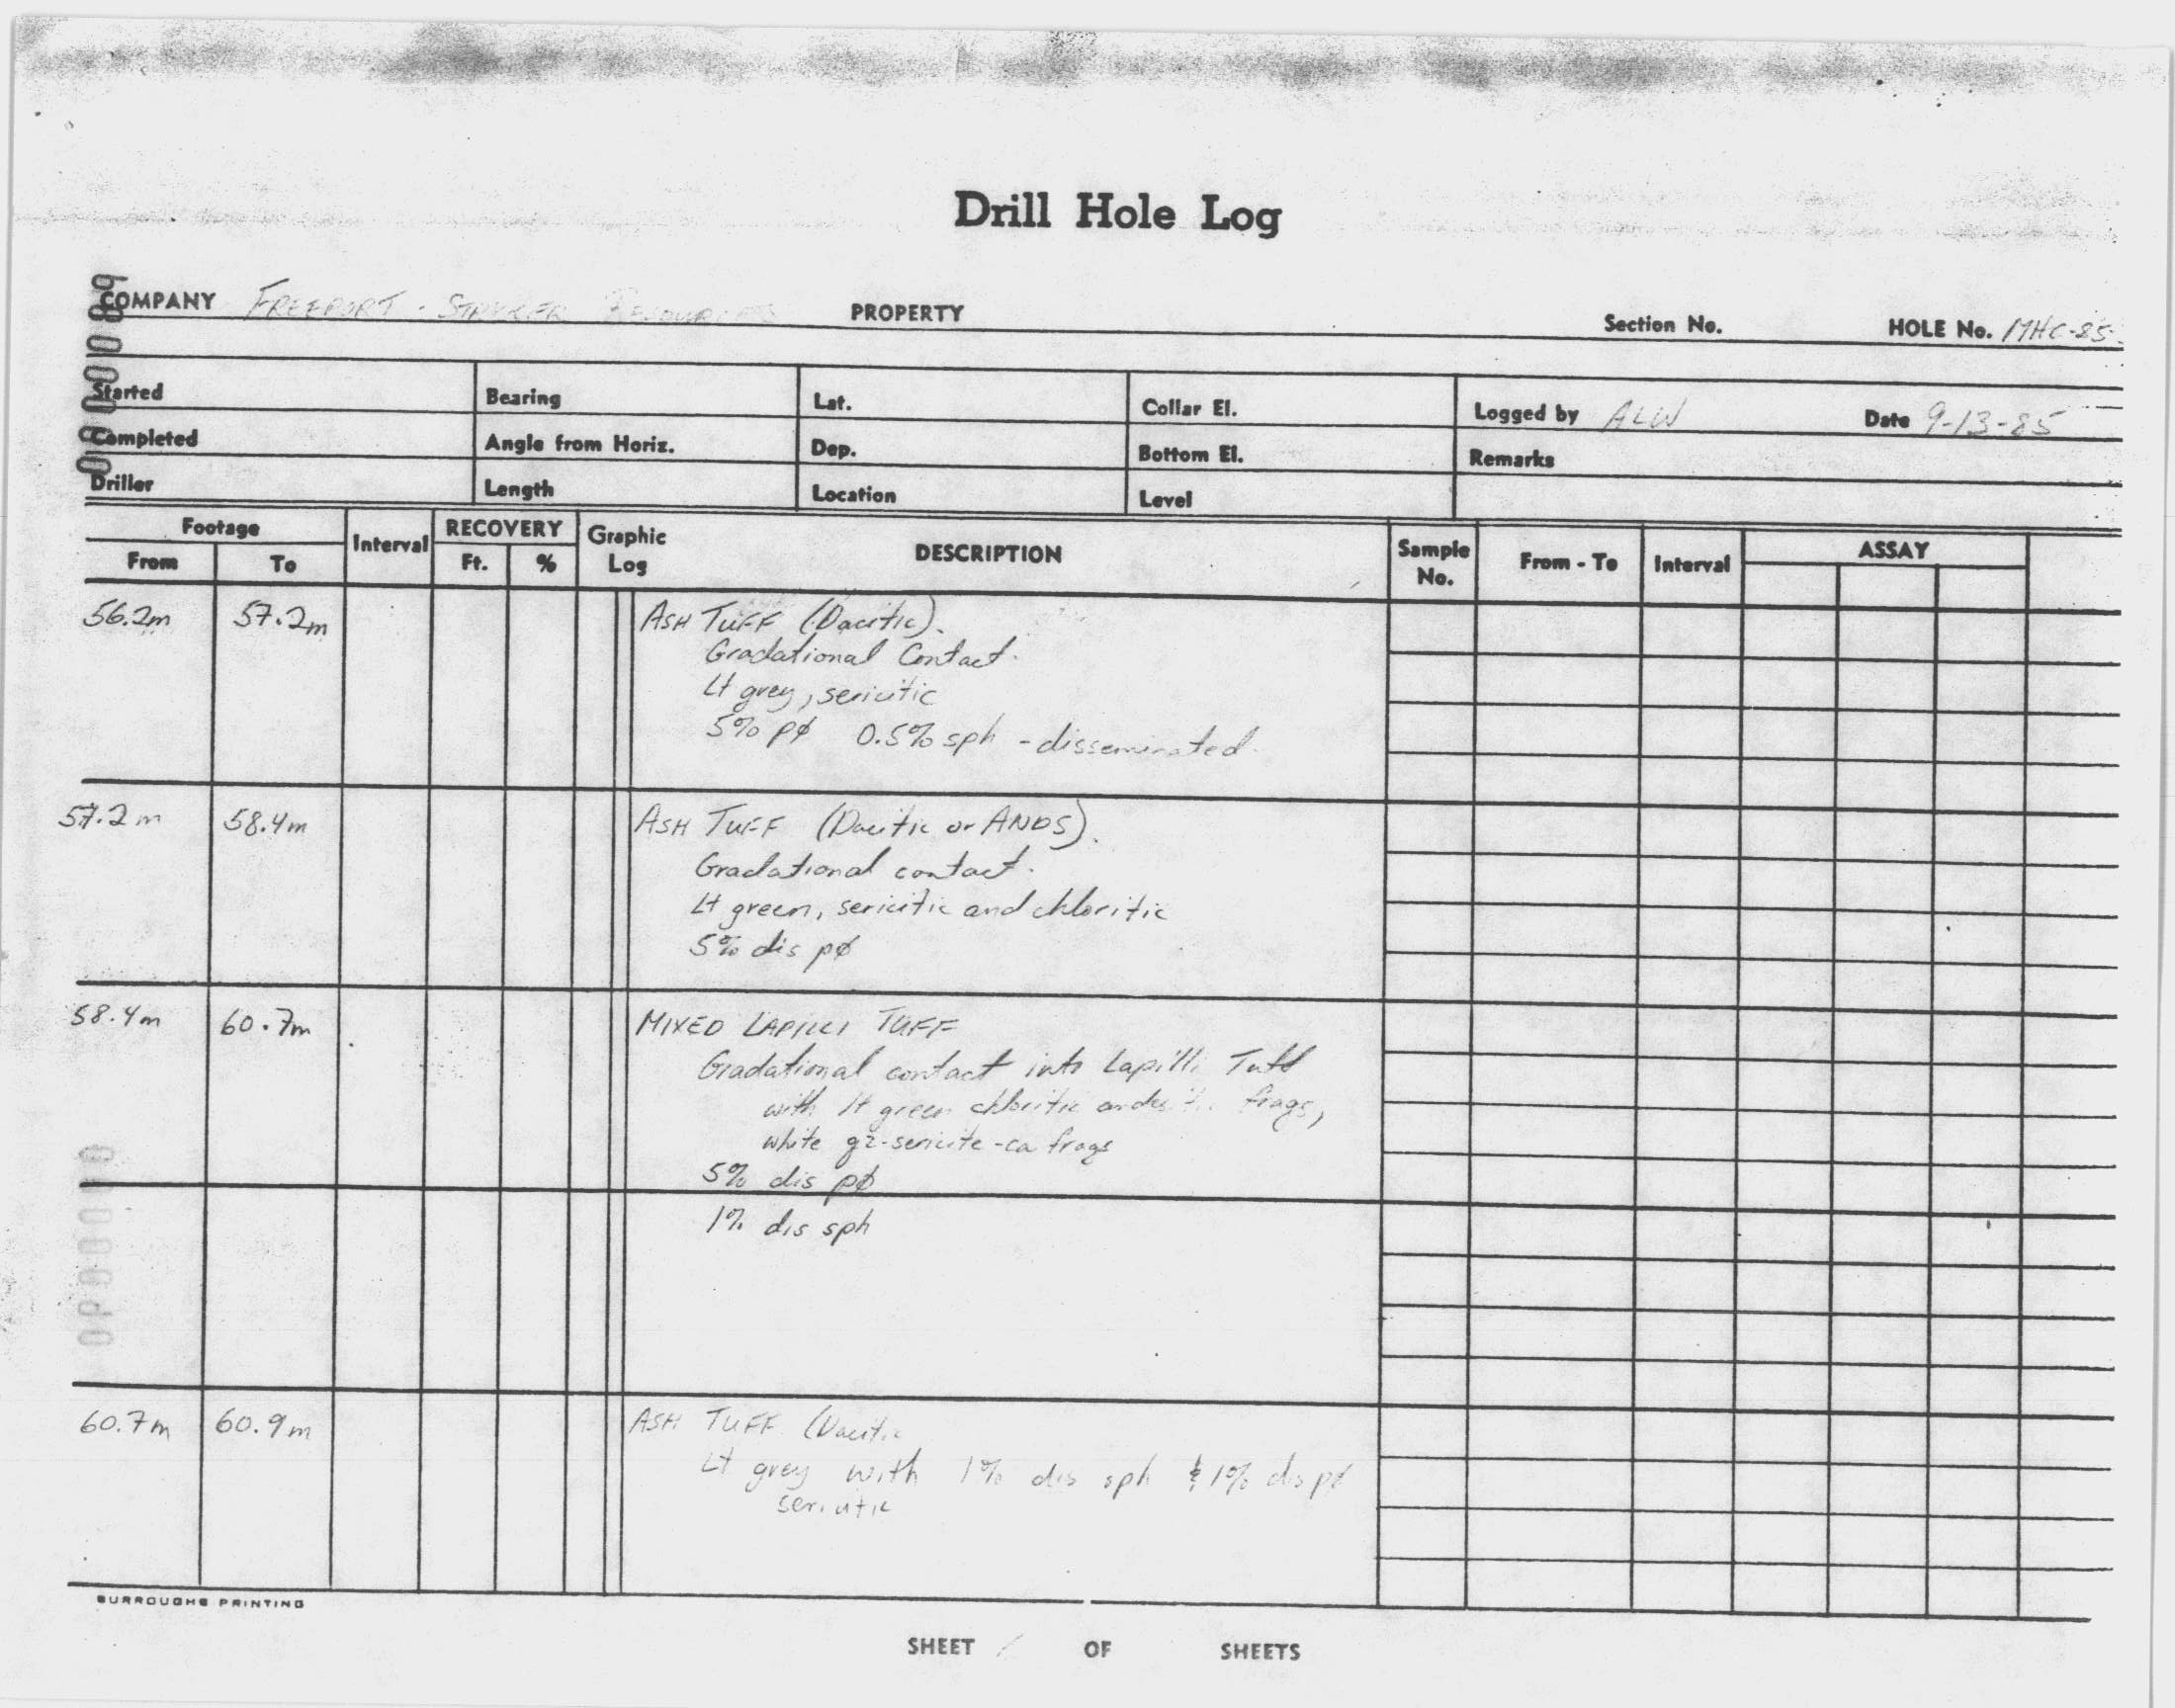 Drill Hole Log
COMPANY FREEPORT - STRYKER RESOURCES PROPERTY Section No. HOLE No. MHC-85-
Started Bearing Lat. Collar El. Logged by ALW Date 9-13-85
Completed Angle from Horiz. Dep. Bottom El. Remarks
Driller Length Location Level
Footage Interval RECOVERY Graphic Log DESCRIPTION Sample No. From - To Interval ASSAY
From To Ft. %
56.2m 57.2m ASH TUFF (Dacitic).
Gradational Contact.
Lt grey, sericitic
5% pø 0.5% sph - disseminated.
57.2m 58.4m ASH TUFF (Dacitic or ANDS).
Gradational contact.
Lt green, sericitic and chloritic
5% dis pø
58.4m 60.7m MIXED LAPILLI TUFF
Gradational contact into Lapilli Tuff
with lt green chloritic andesitic frags,
white qz-sericite-ca frags
5% dis pø
1% dis sph
60.7m 60.9m ASH TUFF (Dacitic
Lt grey with 1% dis sph & 1% dis pø
sericitic
BURROUGHS PRINTING
SHEET OF SHEETS